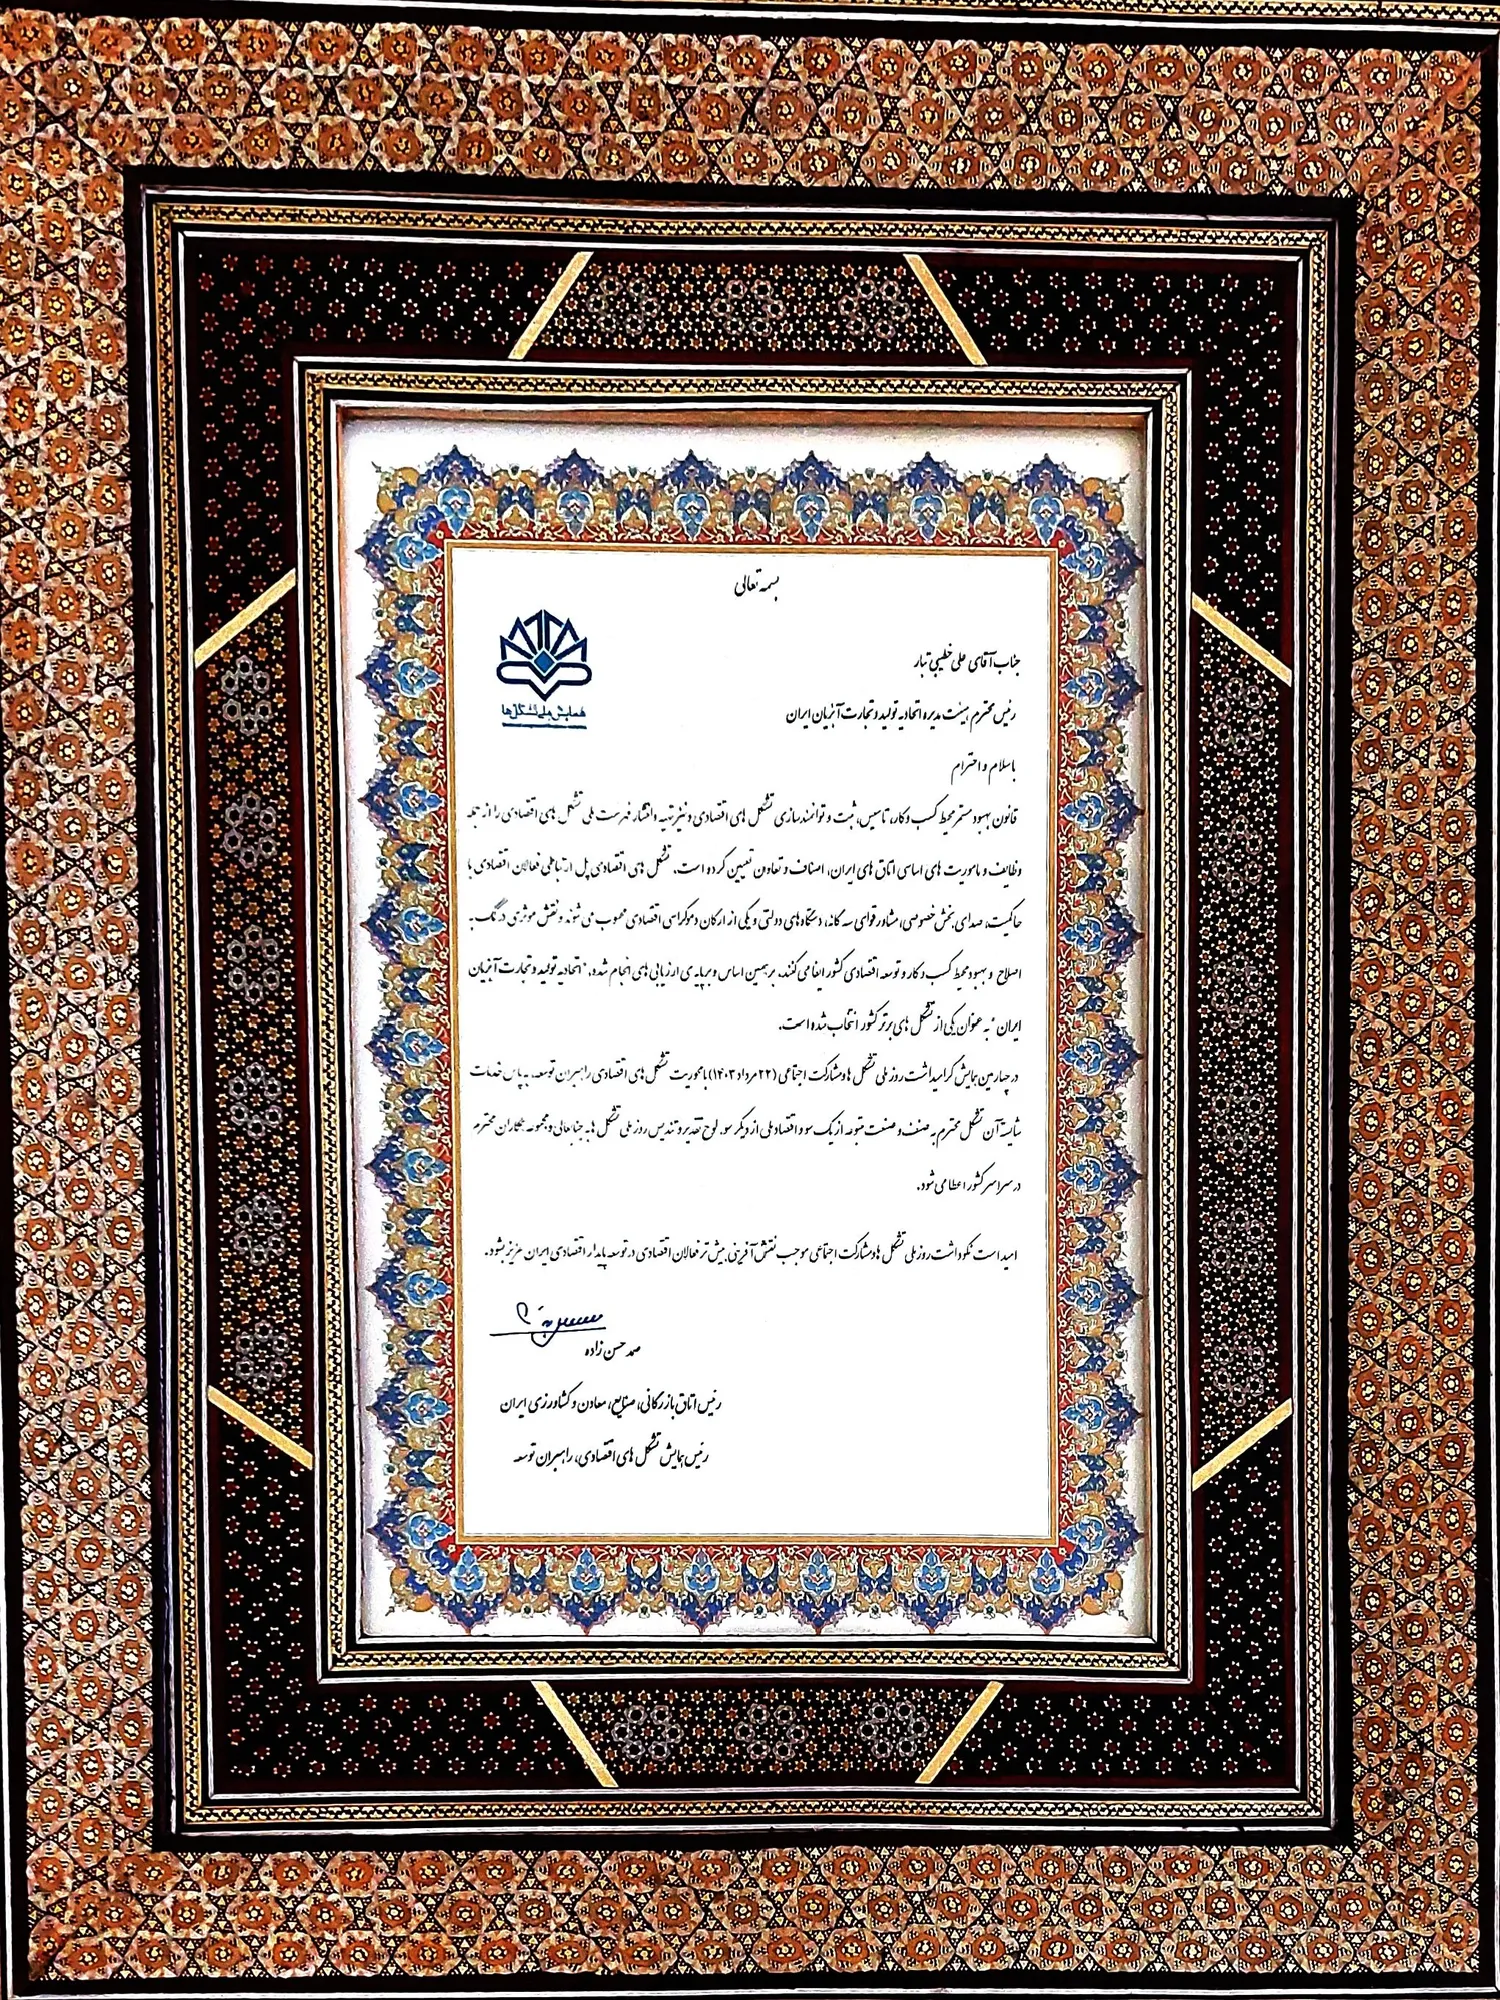 بسمه تعالی
همایش ملی تشکل‌ها
جناب آقای علی خطیبی تبار
رئیس محترم هیئت مدیره اتحادیه تولید و تجارت آبزیان ایران
با سلام و احترام
قانون بهبود مستمر محیط کسب و کار، تاسیس، ثبت و توانمندسازی تشکل های اقتصادی و نیز تهیه و انتشار فهرست ملی تشکل های اقتصادی را از جمله
وظایف و ماموریت های اساسی اتاق های ایران، اصناف و تعاون تعیین کرده است. تشکل های اقتصادی پل ارتباطی فعالان اقتصادی با
حاکمیت، صدای بخش خصوصی، مشاور قوای سه گانه، دستگاه های دولتی و یکی از ارکان دموکراسی اقتصادی محسوب می شوند و نقش موثری در کمک به
اصلاح و بهبود محیط کسب و کار و توسعه اقتصادی کشور ایفا می کنند. بر همین اساس و بر پایه ی ارزیابی های انجام شده، "اتحادیه تولید و تجارت آبزیان
ایران" به عنوان یکی از تشکل های برتر کشور انتخاب شده است.
در چهارمین همایش گرامیداشت روز ملی تشکل ها و مشارکت اجتماعی (۲۲ مرداد ۱۴۰۳) با محوریت تشکل های اقتصادی راهبران توسعه، به پاس خدمات
شایسته آن تشکل محترم به صنف و صنعت متبوعه از یک سو و اقتصاد ملی از دیگر سو، لوح تقدیر و تندیس روز ملی تشکل ها به جنابعالی و مجموعه همکاران محترم
در سراسر کشور اعطا می شود.
امید است نکوداشت روز ملی تشکل ها و مشارکت اجتماعی موجب نقش آفرینی بیش تر فعالان اقتصادی در توسعه پایدار اقتصادی ایران عزیز بشود.
صمد حسن زاده
رئیس اتاق بازرگانی، صنایع، معادن و کشاورزی ایران
رئیس همایش تشکل های اقتصادی، راهبران توسعه